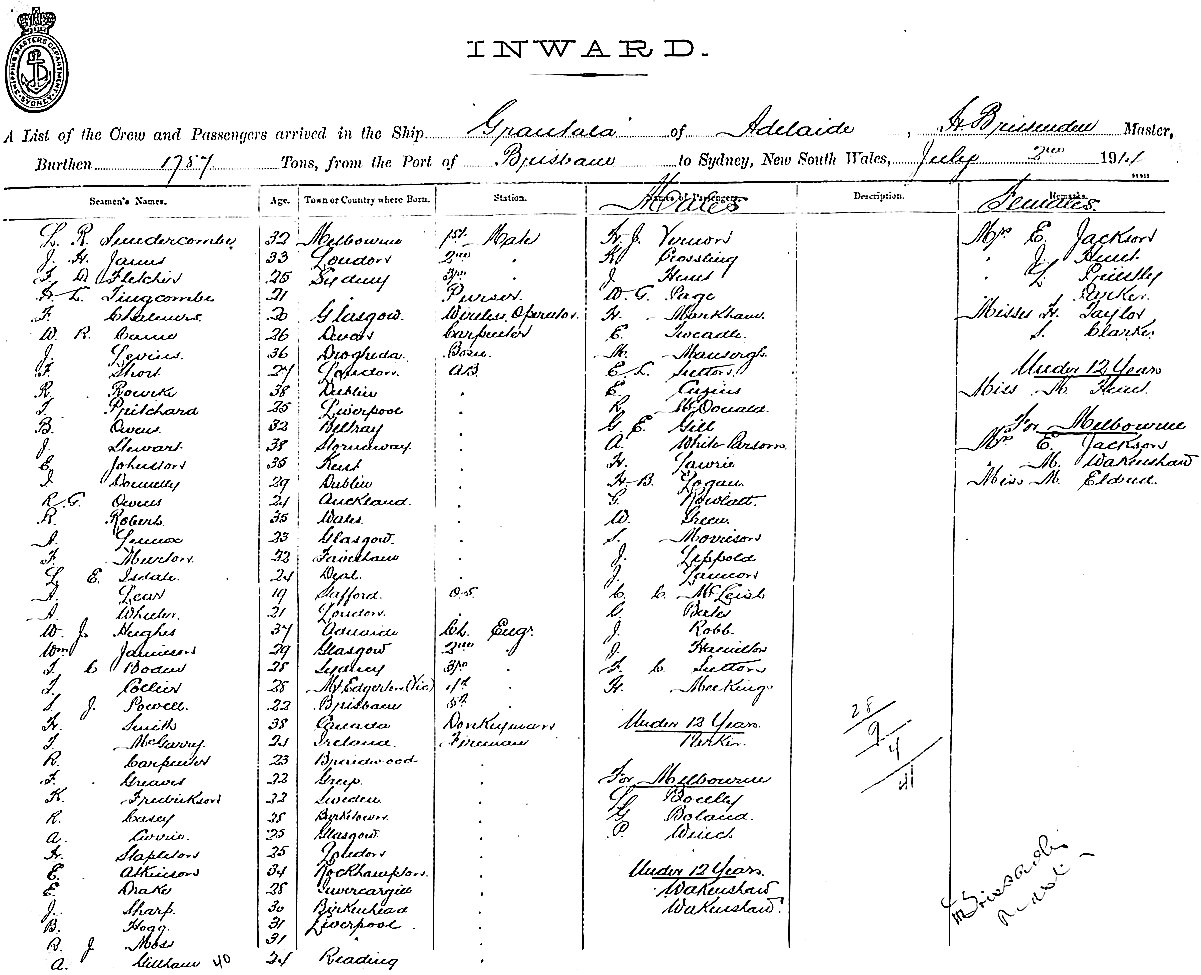 SHIPPING MASTERS DEPARTMENT SYDNEY
INWARD.
A List of the Crew and Passengers arrived in the Ship Grantala of Adelaide, H. Brissenden Master,
Burthen 1787 Tons, from the Port of Brisbane to Sydney, New South Wales, July 2nd 1911
Seamen's Names. Age. Town or Country where Born. Station. Names of Passengers. Description. Remarks.
Males Females.
L. R. 32 Melbourne 1st Mate H. J. Vernon Mrs E. Jackson
J. H. 33 London 2nd " K. Crossling " J. Hunt
F. A. Fletcher 25 Sydney 3rd " J. Hunt " L. Priestley
H. L. Tingcombe 21 " Purser W. G. Page " Parker
F. Chalmers 20 Glasgow Wireless Operator H. Markham Misses H. Taylor
W. R. 26 Devon Carpenter E. S. Clarke
J. Levins 36 Drogheda Bosn. M. Mansergh
F. Short 27 London AB E. L. Sutton Under 12 Years
R. Rourke 38 Dublin . E. Miss M. Hunt
T. Pritchard 25 Liverpool . R. McDonald
B. Owens 32 . G. E. Gill For Melbourne
J. Stewart 38 Stornoway . A. White Parsons Mrs E. Jackson
E. Johnston 35 Kent . H. Lawrie " M. Wakenshaw
J. Donnelly 29 Dublin . H. B. Logan Miss M.
R. G. Owens 21 Auckland . G. Rowlatt
R. Roberts 35 Wales . W. Green
A. Lennox 23 Glasgow . S. Morrison
F. Murton 22 Faversham . J. Leppold
L. E. Isdale 24 Deal . J.
A. Lear 19 Salford O.S. C. C. McLeish
A. Wheeler 21 London . C.
W. J. Hughes 37 Adelaide Ch. Engr. J. Robb
Wm Jamieson 29 Glasgow 2nd . J. Hamilton
T. C. 28 Sydney 3rd . F. C. Sutton
T. Collier 28 Mt Edgerton (Vic) 4th . H. Mecking
S. J. Powell 22 Brisbane 5th 28
H. Smith 38 Canada Donkeyman Under 12 Years 9
T. McGarry 21 Ireland Fireman Parker 4
R. Carpenter 23 .
F. Greaves 32 . For Melbourne 41
K. Frederickson 32 Sweden .
R. Casey 28 . G. Boland
A. Currie 25 Glasgow . P.
H. Stapleton 25 London .
E. Atkinson 34 Rockhampton . Under 12 Years
E. Drake 28 Invercargill . Wakenshaw
J. Sharp 30 Birkenhead . Wakenshaw
B. Hogg 31 Liverpool .
R. J. Moss 31 " .
A. Gillham 40 24 Reading .